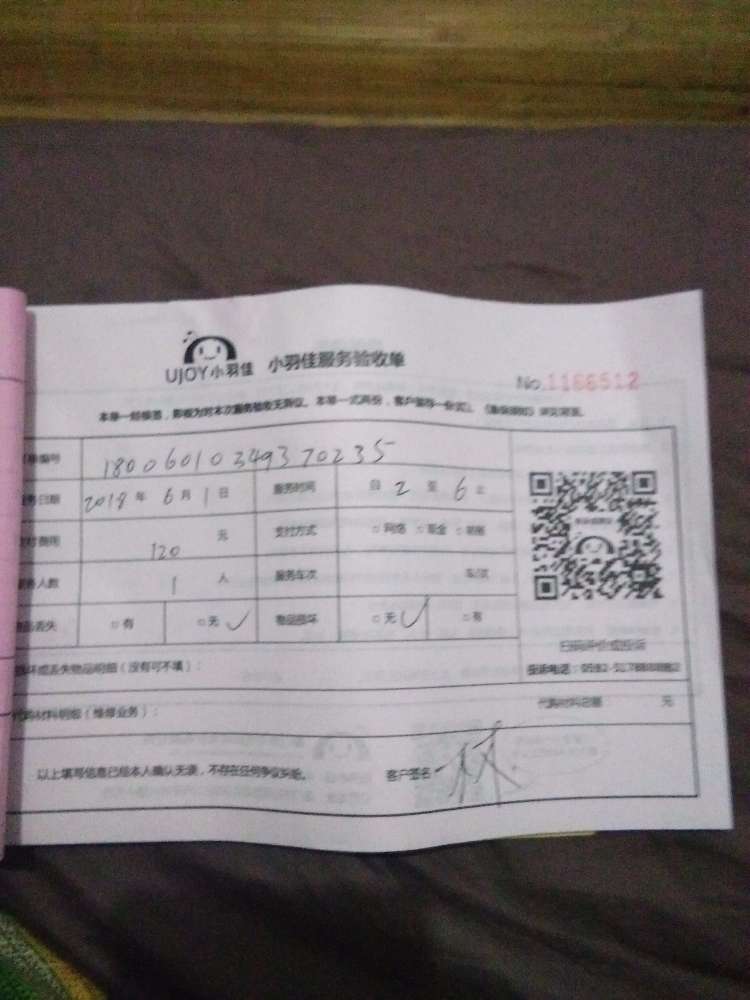 UJOY小羽佳 小羽佳服务验收单
No.1166512
本单一经接签，即视为对本次服务验收无异议。本单一式两份，客户留存一份
单编号 18006010349370235
务日期 2018年6月1日 服务时间 自2至6止
付费用 120元 支付方式 □网络 □现金
务人数 1人 服务车次 车/次
物品丢失 □有 □无✓ 物品损坏 □无✓ □有
扫码评价或投诉
损坏或丢失物品明细（没有可不填）：
投诉电话：0592-5178
代购材料明细（维修业务）： 代购材料总额 元
以上填写信息已经本人确认无误，不存在任何争议纠纷。 客户签名 林